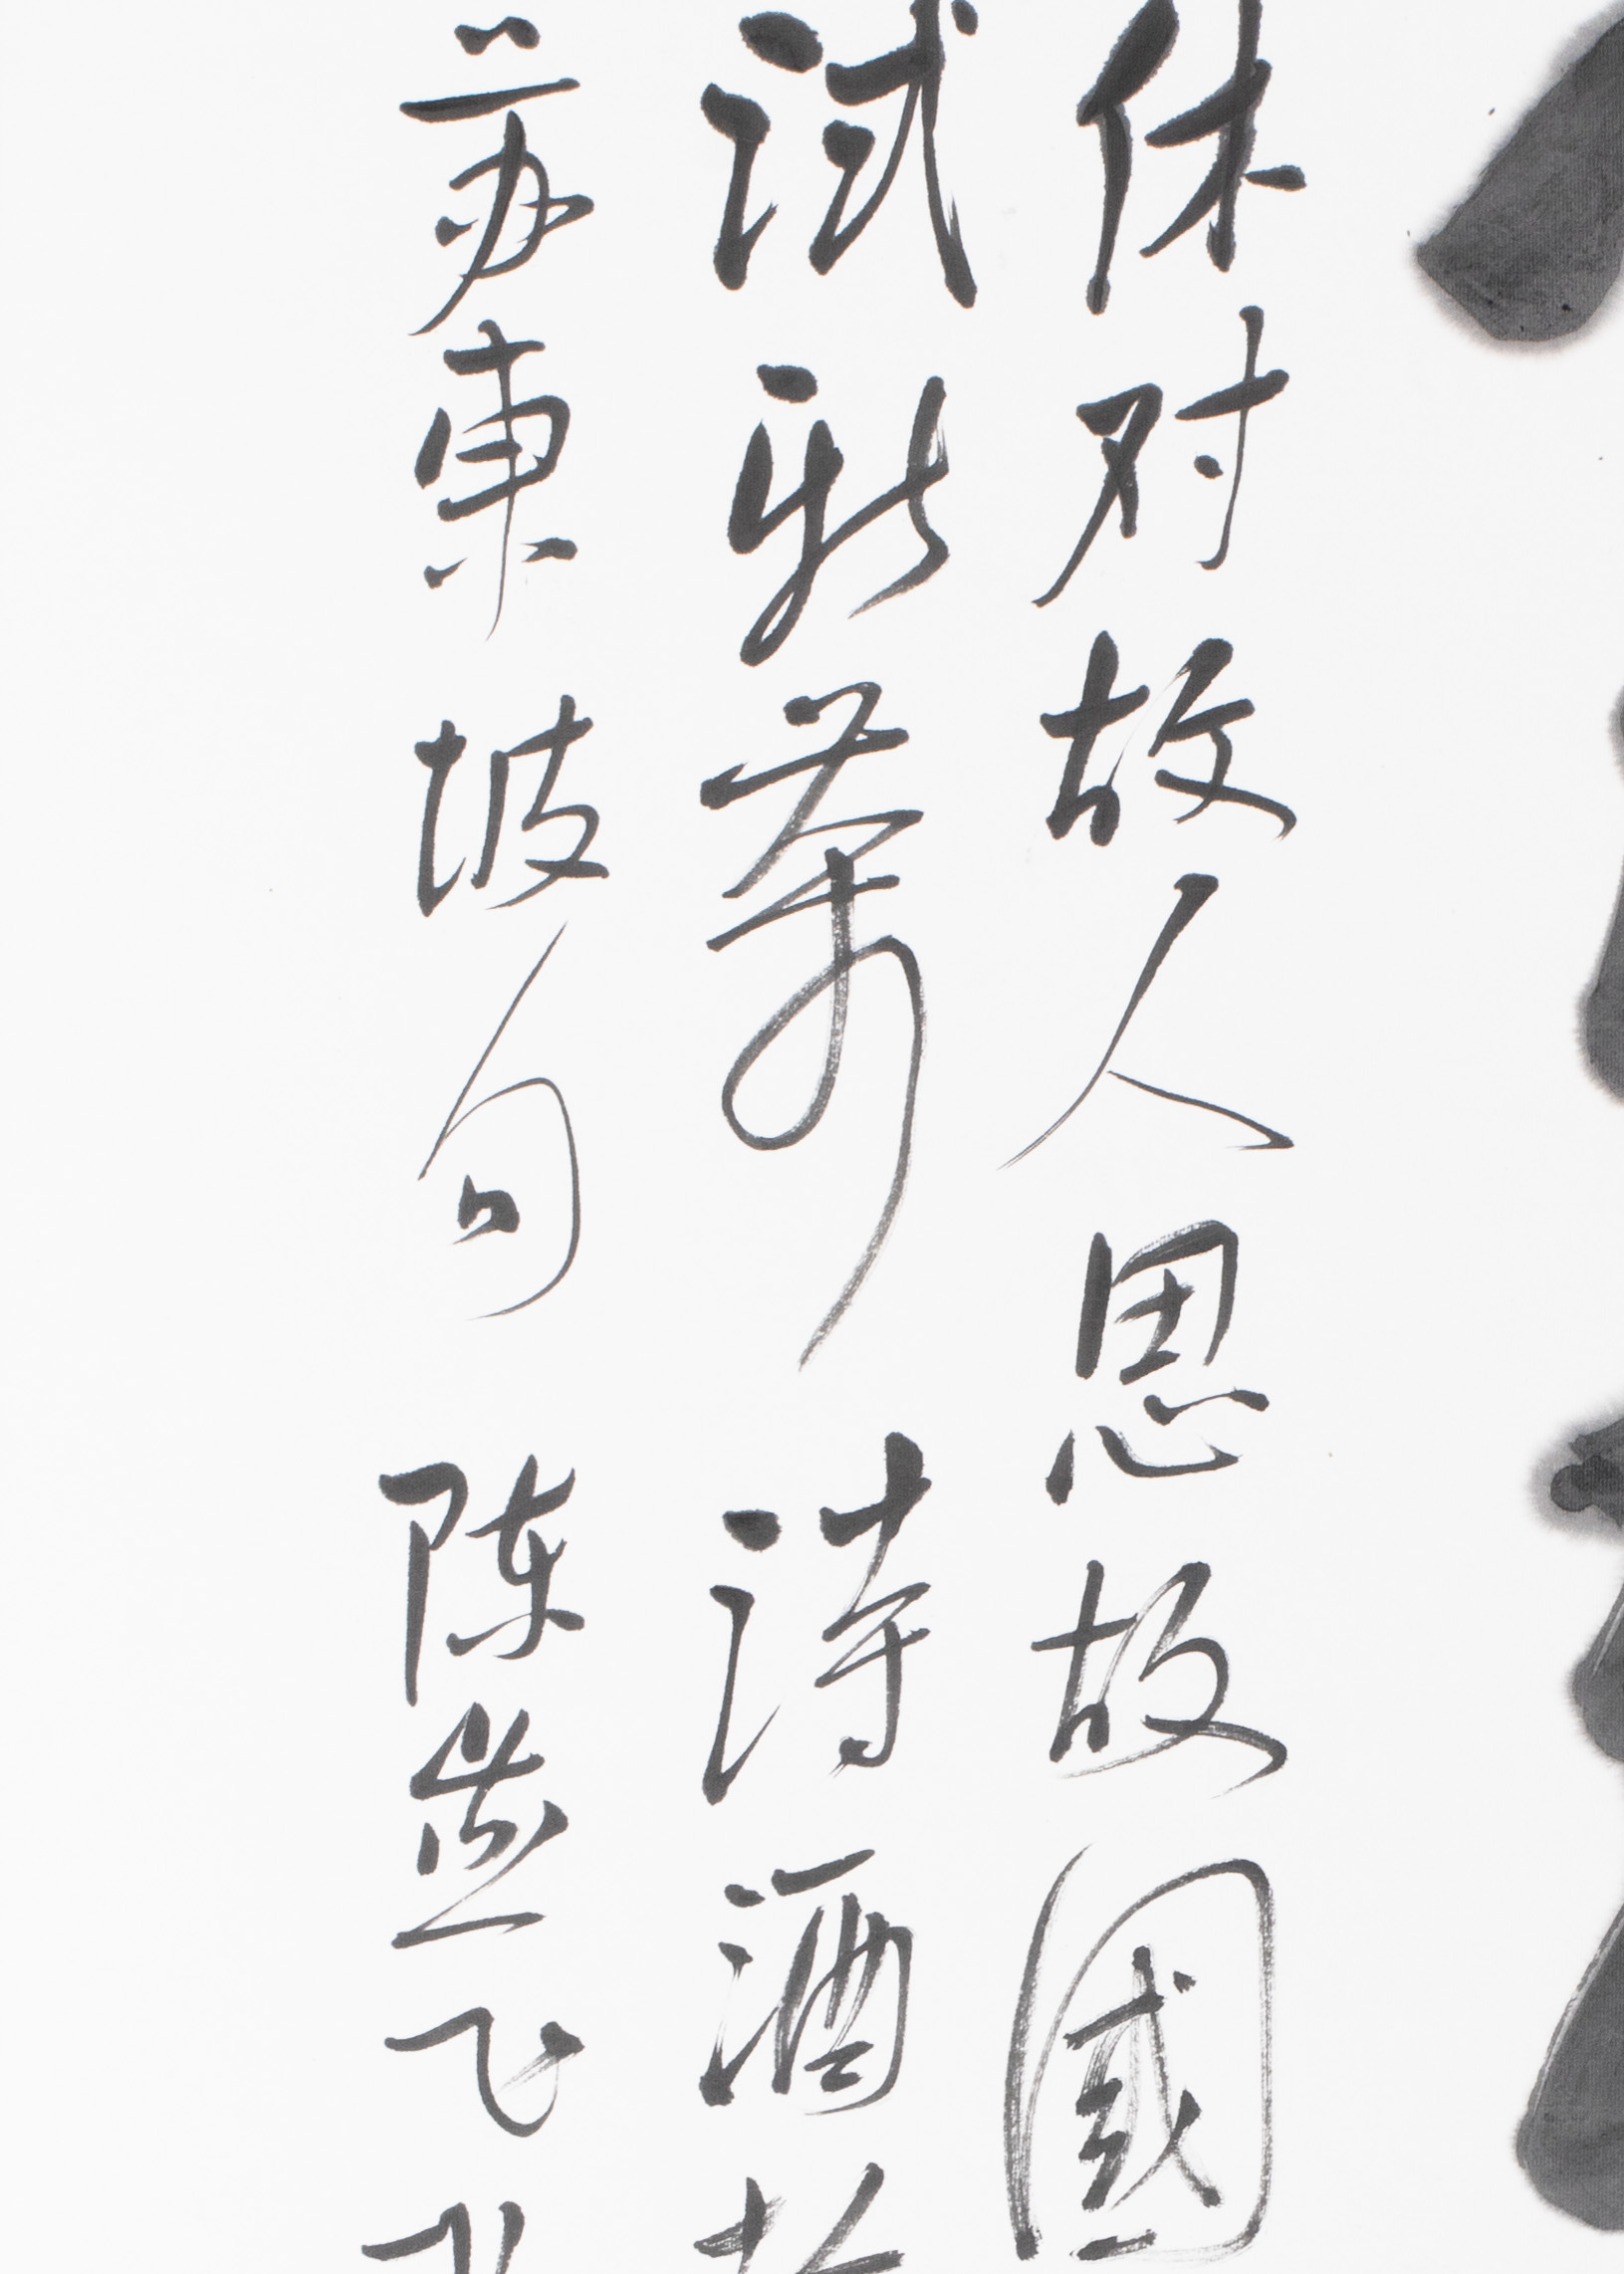 休对故人思故國
试新茶诗酒
苏东坡句 陈益飞